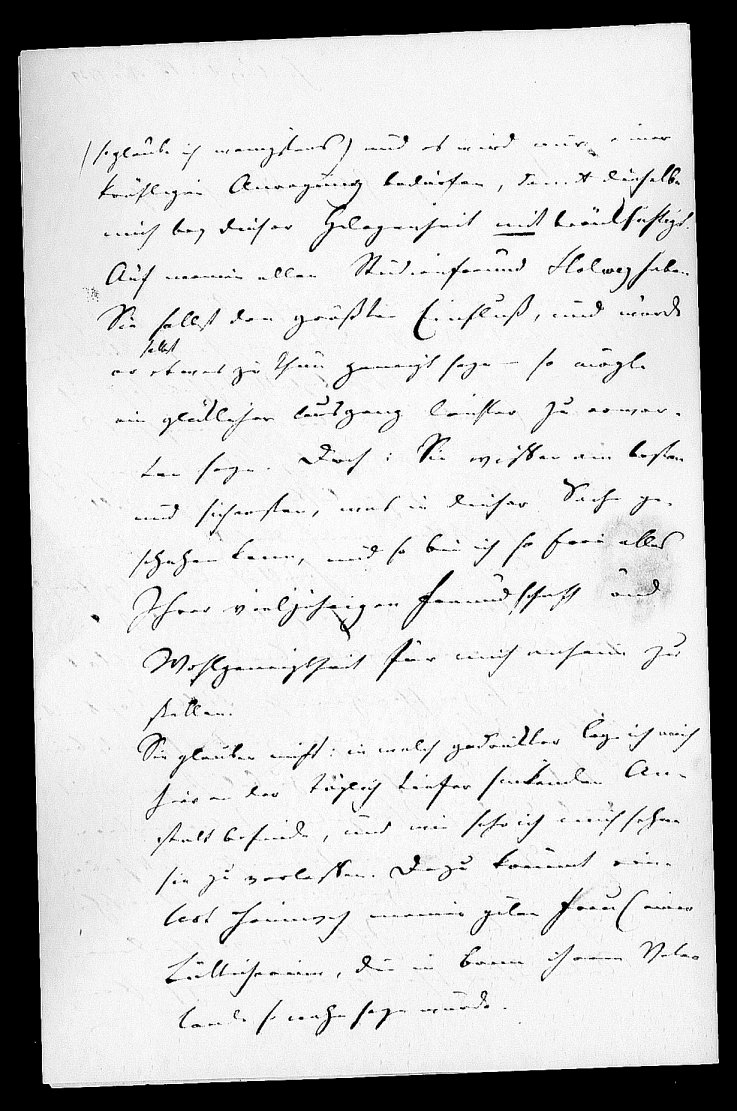 (so glaube ich wenigstens) und es wird nur einer
kräftigen Anregung bedürfen, damit dieselbe
mich bey dieser Gelegenheit mit berücksichtigt.
Auf meinen alten Studienfreund Hollweg haben
Sie selbst den größten Einfluß, und würde
selbst
er etwas zu thun geneigt seyn – so mögte
ein glücklicher Ausgang leichter zu erwar-
ten seyn. Doch: Sie wißen am besten
und sichersten, was in dieser Sache ge-
schehen kann, und so bin ich so frei alles
Ihrer vieljährigen Freundschaft und
Wohlgeneigtheit für mich anheim zu
stellen.
Sie glauben nicht: in welch gedrückter Lage ich mich
hier an der täglich tiefer sinkenden An-
stalt befinde, und wie sehr ich mich sehne
sie zu verlassen. Dazu kömmt
Heimweh meiner guten Frau (einer
Lütticherinn, die in Bonn ihrem Vater
lande so nahe seyn würde.